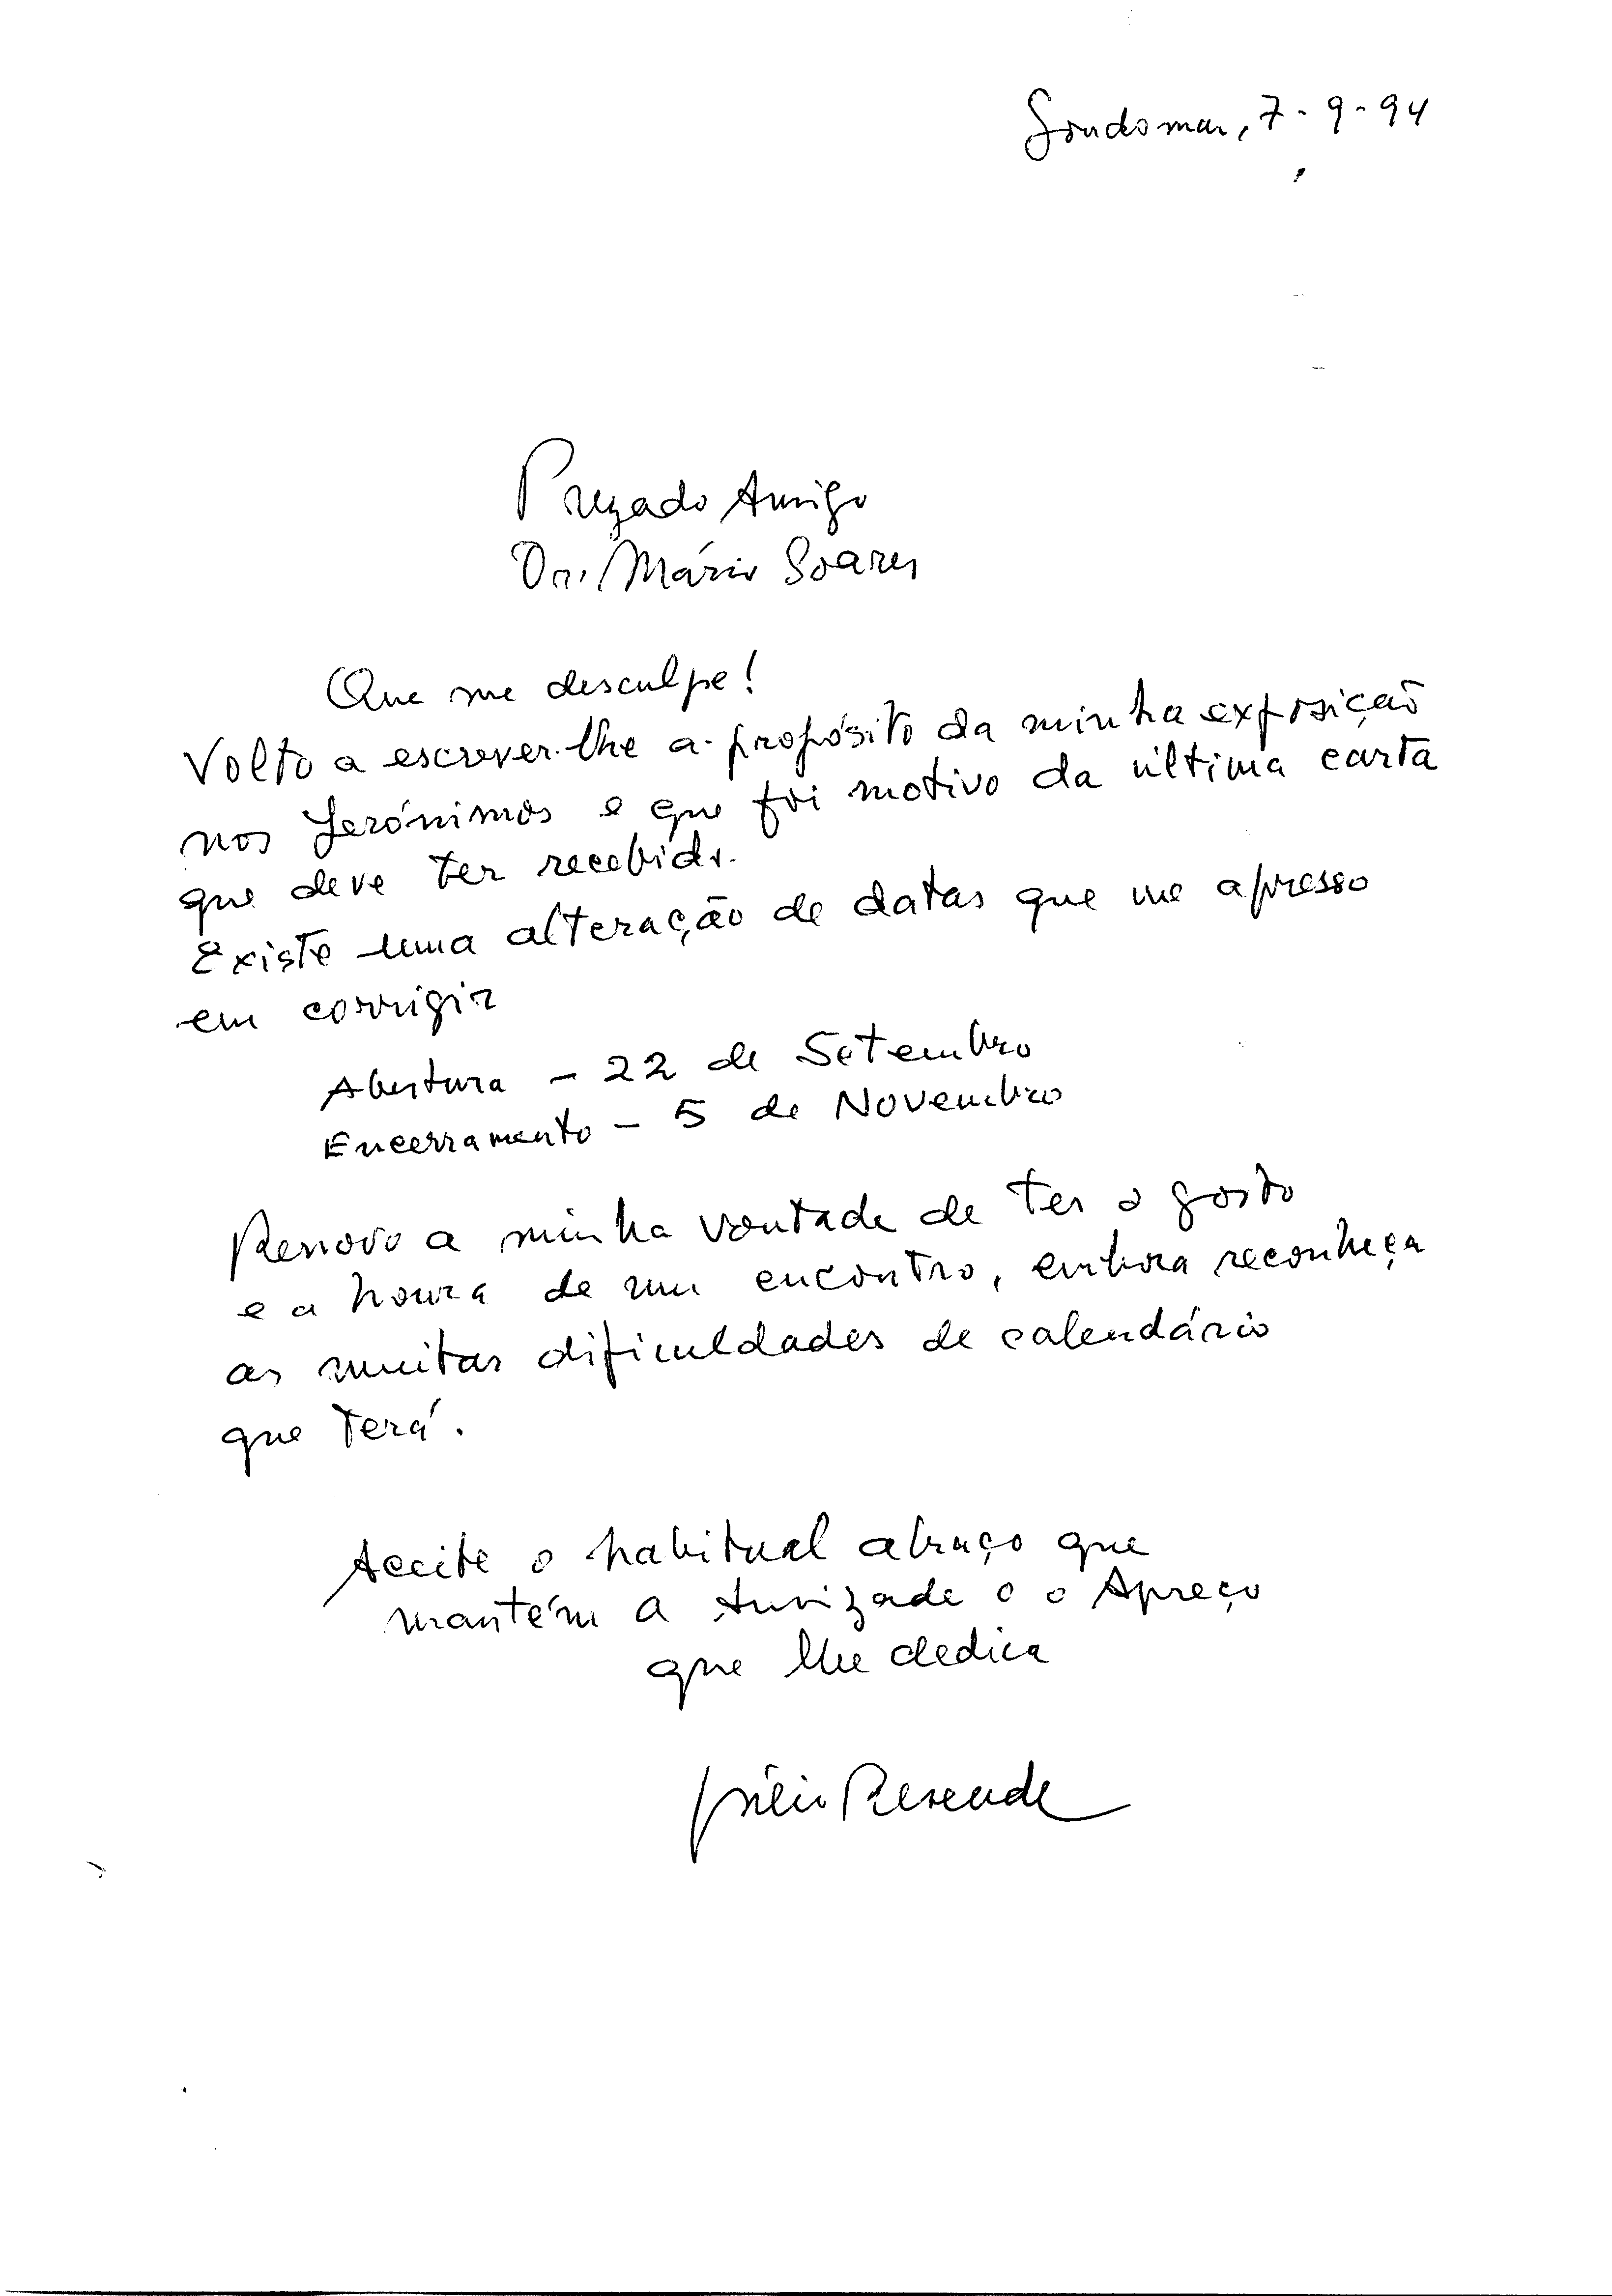 Gondomar, 7-9-94
Prezado Amigo
Dr. Mário Soares
Que me desculpe!
Volto a escrever-lhe a propósito da minha exposição
nos Jerónimos e que foi motivo da última carta
que deve ter recebido.
Existe uma alteração de datas que me apresso
em corrigir
Abertura - 22 de Setembro
Encerramento - 5 de Novembro
Renovo a minha vontade de ter o gosto
e a honra de um encontro, embora reconheça
as muitas dificuldades de calendário
que terá.
Aceite o habitual abraço que
mantém a Amizade e o Apreço
que lhe dedica
Júlio Resende